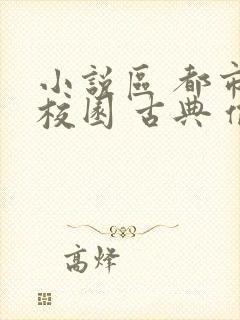 小說區 都市
校園 古典
高烽